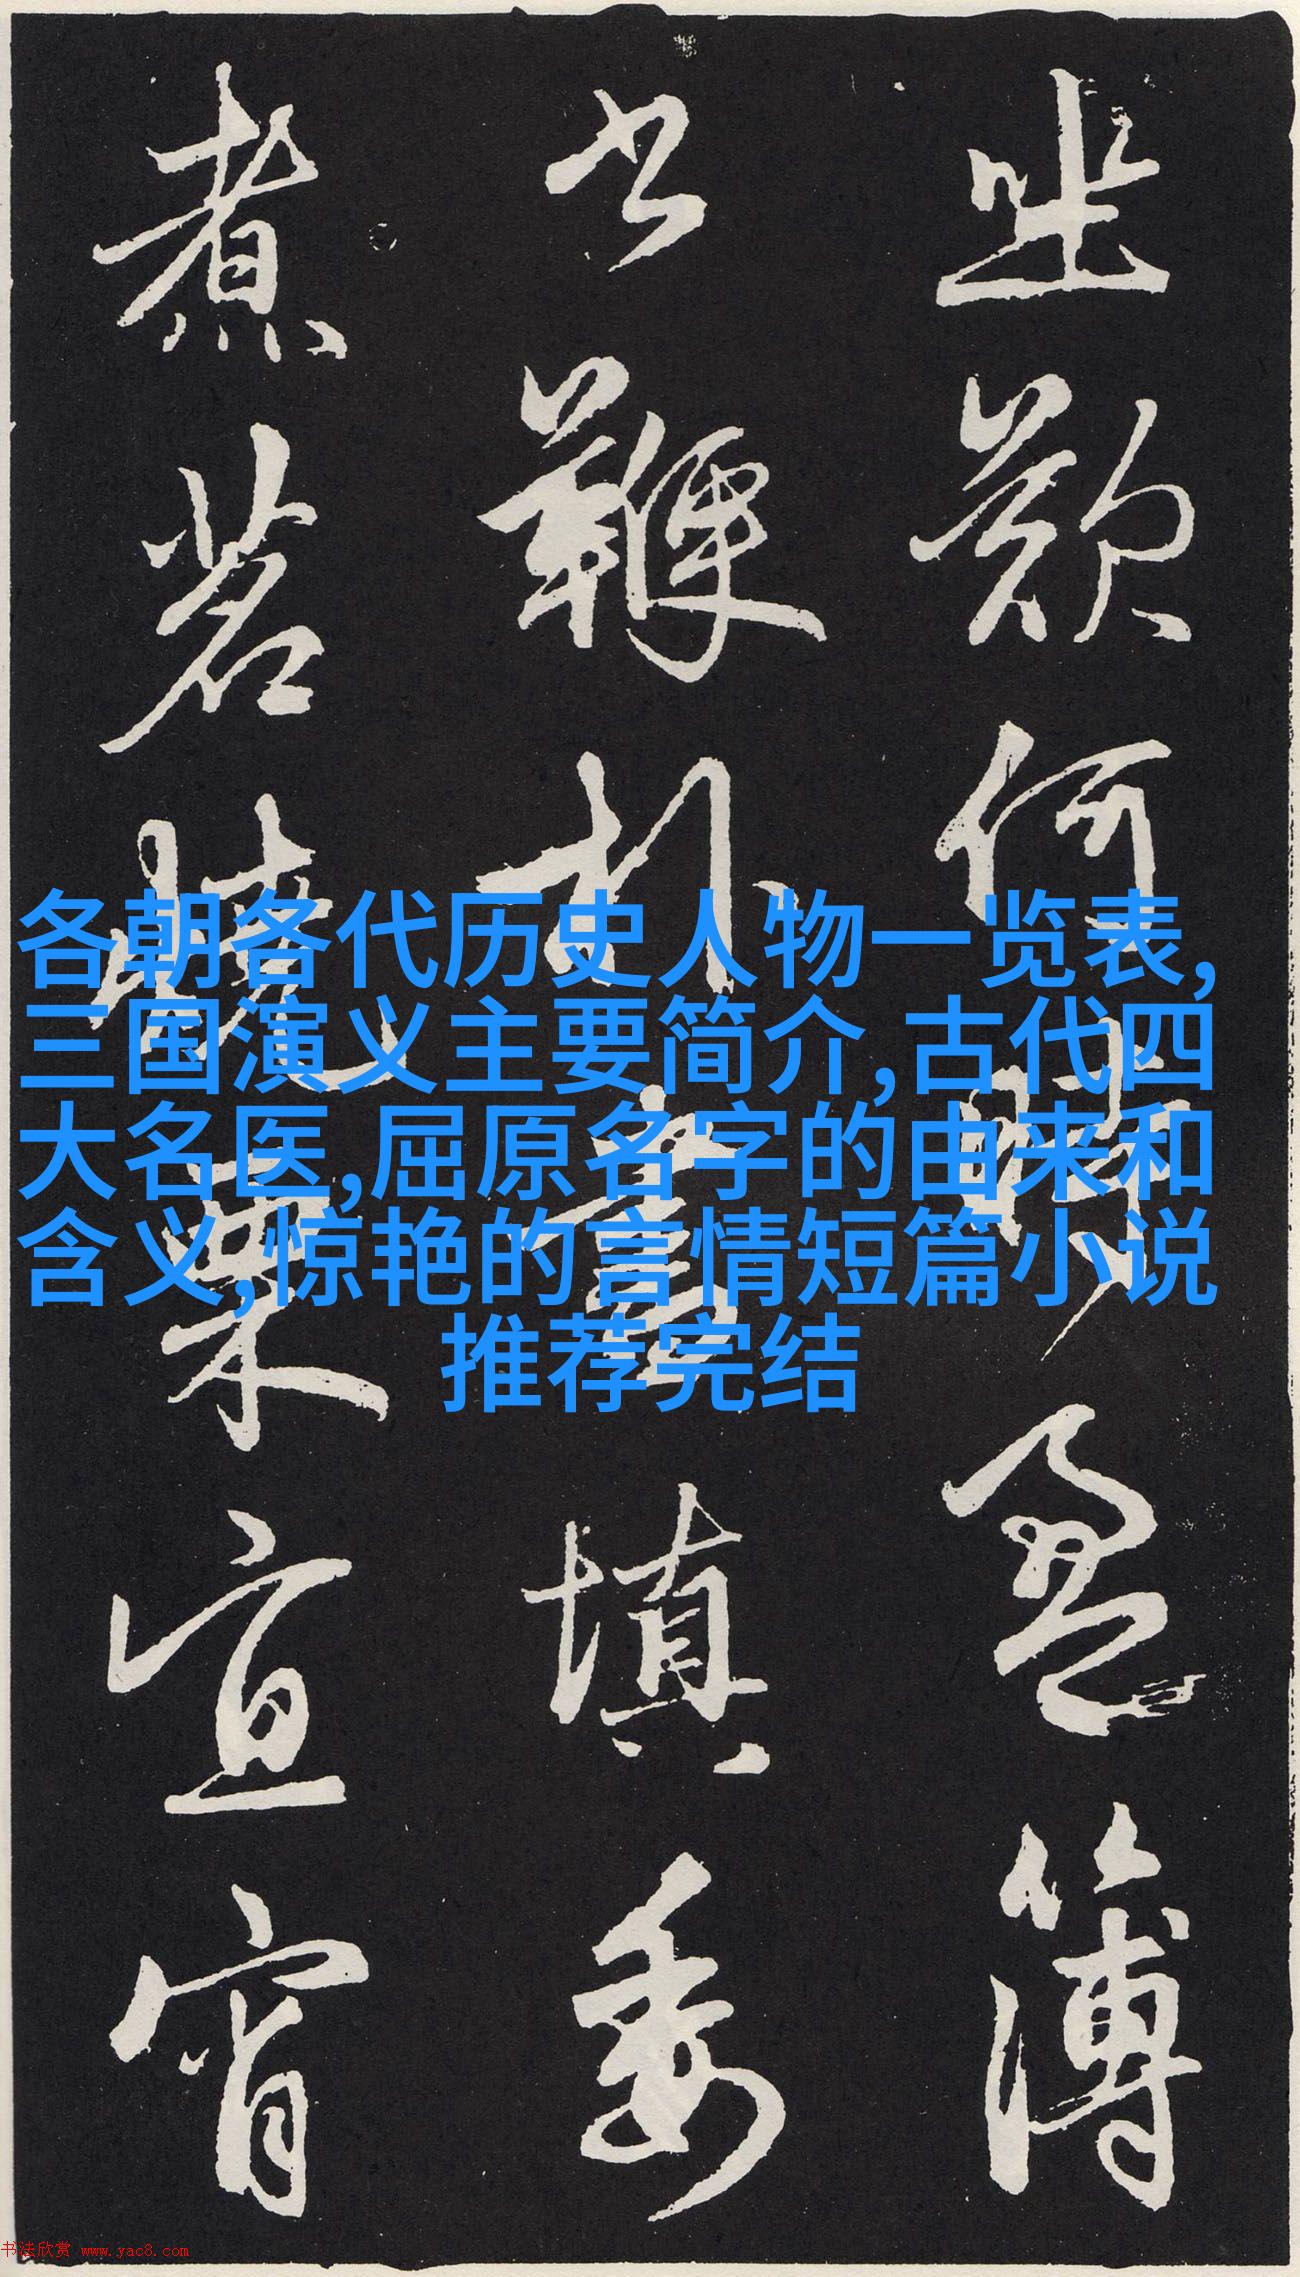 各朝各代历史人物一览表,
三国演义主要简介,古代四
大名医,屈原名字的由来和
含义,惊艳的言情短篇小说
推荐完结
歎何時盈簿
書鞭朴晝填委
煮茗燒栗宜宵
书法欣赏 www.yac8.com